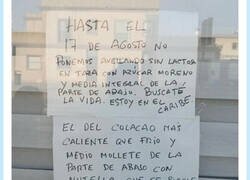 HASTA EL
17 DE AGOSTO NO
PONEMOS AVELLANO SIN LACTOSA
EN TAZA CON AZUCAR MORENO
Y MEDIA INTEGRAL DE LA
PARTE DE ABAJO. BUSCATE
LA VIDA. ESTOY EN EL
CARIBE
EL DEL COLACAO MAS
CALIENTE QUE FRIO Y
MEDIO MOLLETE DE LA
PARTE DE ABAJO CON